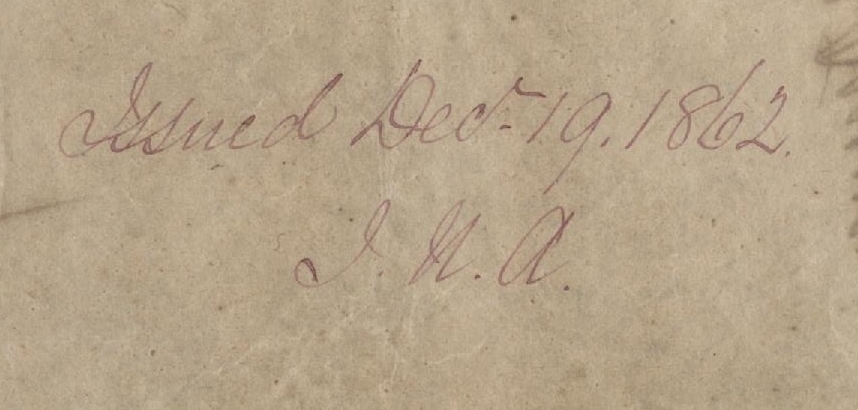 Issued Decr 19. 1862.
J. N. A.